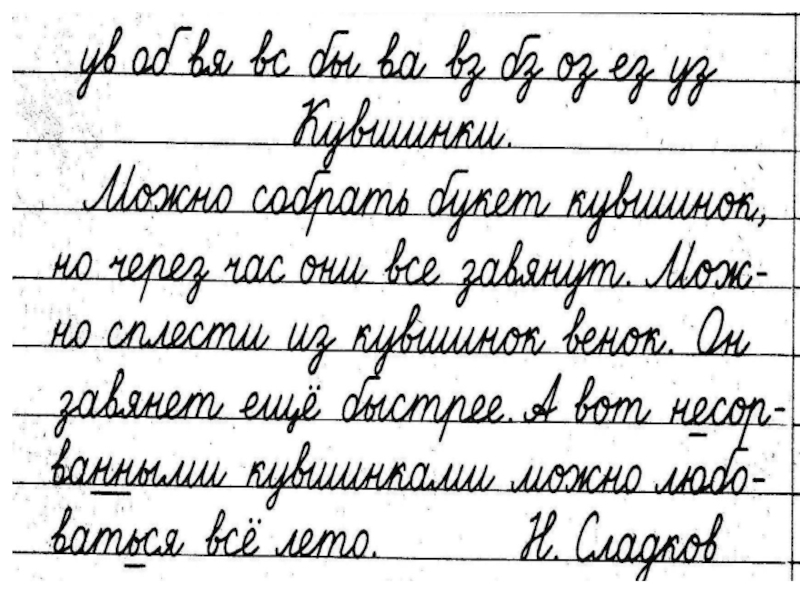 ув об вя вс бы ва вз бз оз ез уз
Кувшинки.
Можно собрать букет кувшинок,
но через час они все завянут. Мож-
но сплести из кувшинок венок. Он
завянет ещё быстрее. А вот несор-
ванными кувшинками можно любо-
ваться всё лето. Н. Сладков